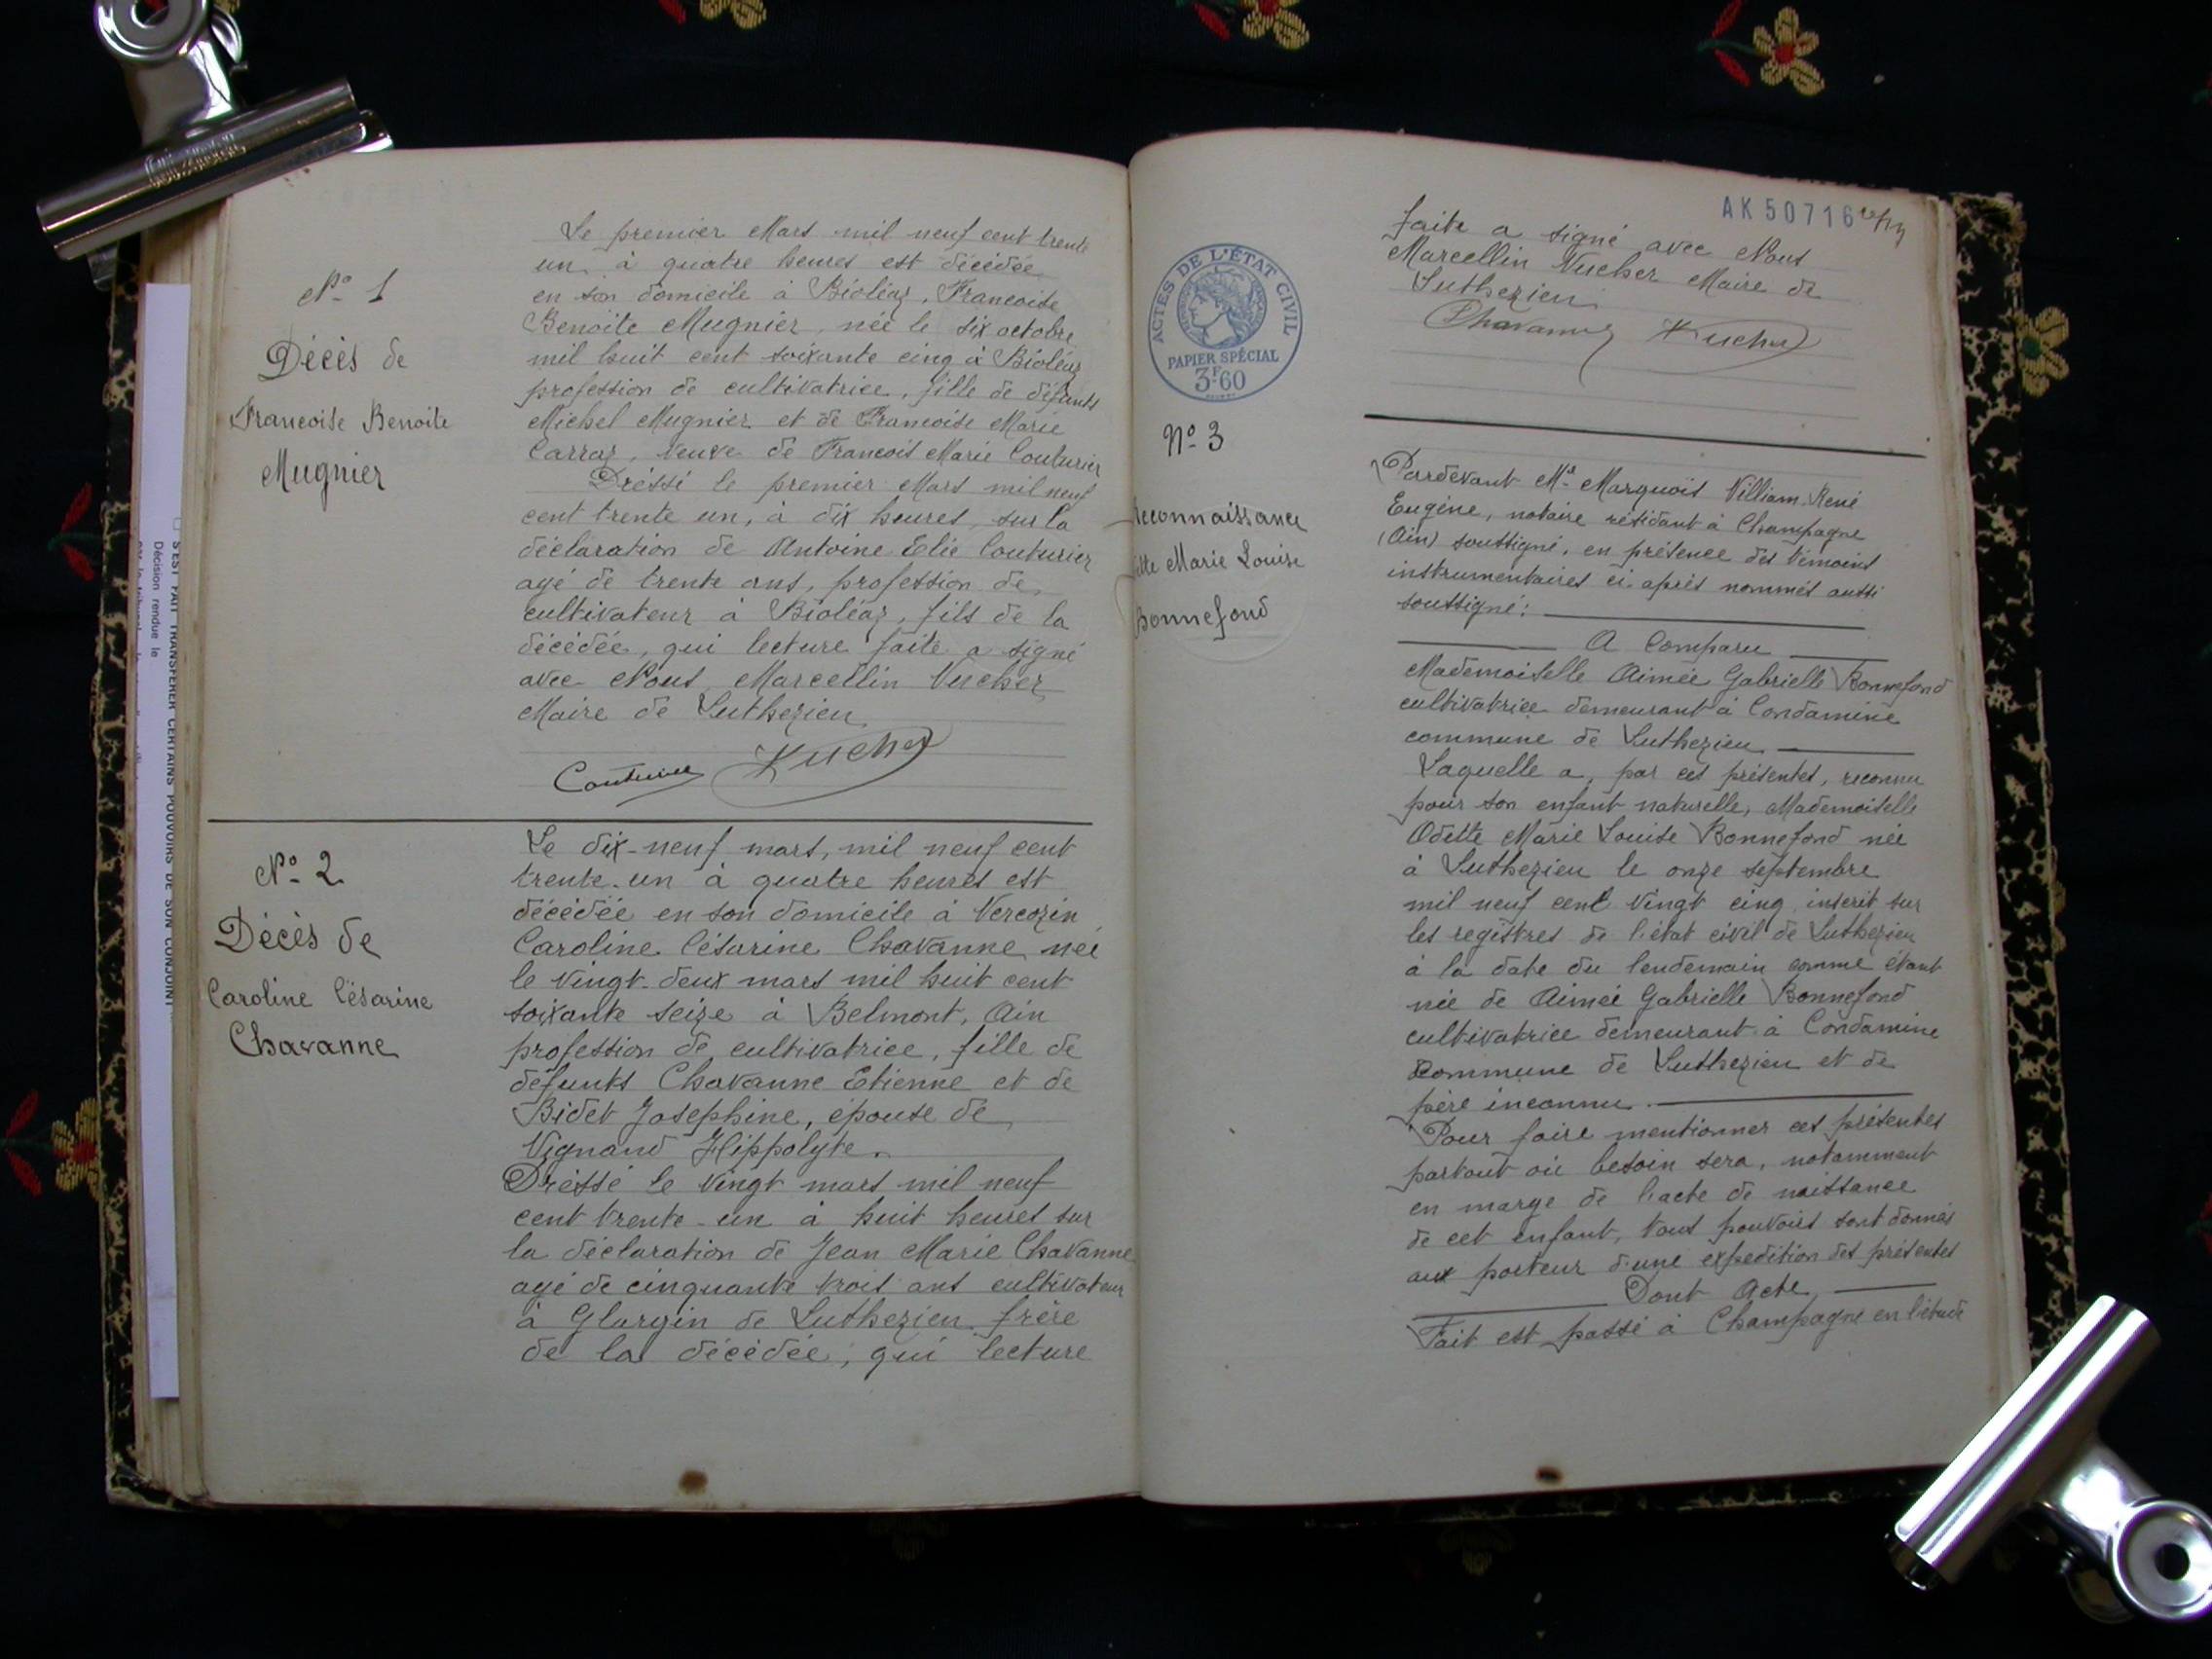 N° 1
Décès de
Francoise Benoite
Mugnier
Le premier Mars mil neuf cent trente
un à quatre heures est décédée
en son domicile à Bioléaz, Francoise
Benoîte Mugnier née le six octobre
mil huit cent soixante cinq à Bioléaz
profession de cultivatrice, fille de défunts
Michel Mugnier et de Francoise Marie
Carraz, veuve de Francois Marie Couturier
Dréssé le premier Mars mil neuf
cent trente un, à dix heures, sur la
déclaration de Antoine Elie Couturier
agé de trente ans, profession de
cultivateur à Bioléaz, fils de la
décédée, qui lecture faite a signé
avec Nous Marcellin Vucher
Maire de Luthezieu
Couturier Vucher
N° 2
Décès de
Caroline Césarine
Chavanne
Le dix-neuf mars, mil neuf cent
trente-un à quatre heures est
décédée en son domicile à Vercozin
Caroline Césarine Chavanne née
le vingt-deux mars mil huit cent
soixante seize à Belmont, Ain
profession de cultivatrice, fille de
défunts Chavanne Etienne et de
Bidet Josephine, épouse de
Vignand Hippolyte.
Dréssé le vingt mars mil neuf
cent trente-un à huit heures sur
la déclaration de Jean Marie Chavanne
agé de cinquante trois ans cultivateur
à Glargin de Luthezieu frère
de la décédée, qui lecture
S'EST FAIT TRANSFÉRER CERTAINS POUVOIRS DE SON CONJOINT
Décision rendue le
AK 50716
faite a signé avec Nous
Marcellin Vucher Maire de
Luthezieu
Chavanne Vucher
ACTES DE L'ÉTAT CIVIL
PAPIER SPÉCIAL
3F.60
N° 3
Reconnaissance
Marie Louise
Bonnefond
Pardevant Me Marquois William René
Eugène, notaire résidant à Champagne
(Ain) soussigné, en présence des témoins
instrumentaires ci-après nommés aussi
soussigné:
A Comparu
Mademoiselle Aimée Gabrielle Bonnefond
cultivatrice demeurant à Condamine
commune de Luthezieu
Laquelle a, par ces présentes, reconnu
pour son enfant naturelle, Mademoiselle
Odette Marie Louise Bonnefond née
à Luthezieu le onze septembre
mil neuf cent vingt cinq inscrit sur
les registres de l'état civil de Luthezieu
à la date du lendemain comme étant
née de Aimée Gabrielle Bonnefond
cultivatrice demeurant à Condamine
commune de Luthezieu et de
père inconnu.
Pour faire mentionner ces présentes
partout où besoin sera, notamment
en marge de l'acte de naissance
de cet enfant, tous pouvoirs sont donnés
aux porteur d'une expedition des présentes
Dont Acte,
Fait est passé à Champagne en l'étude